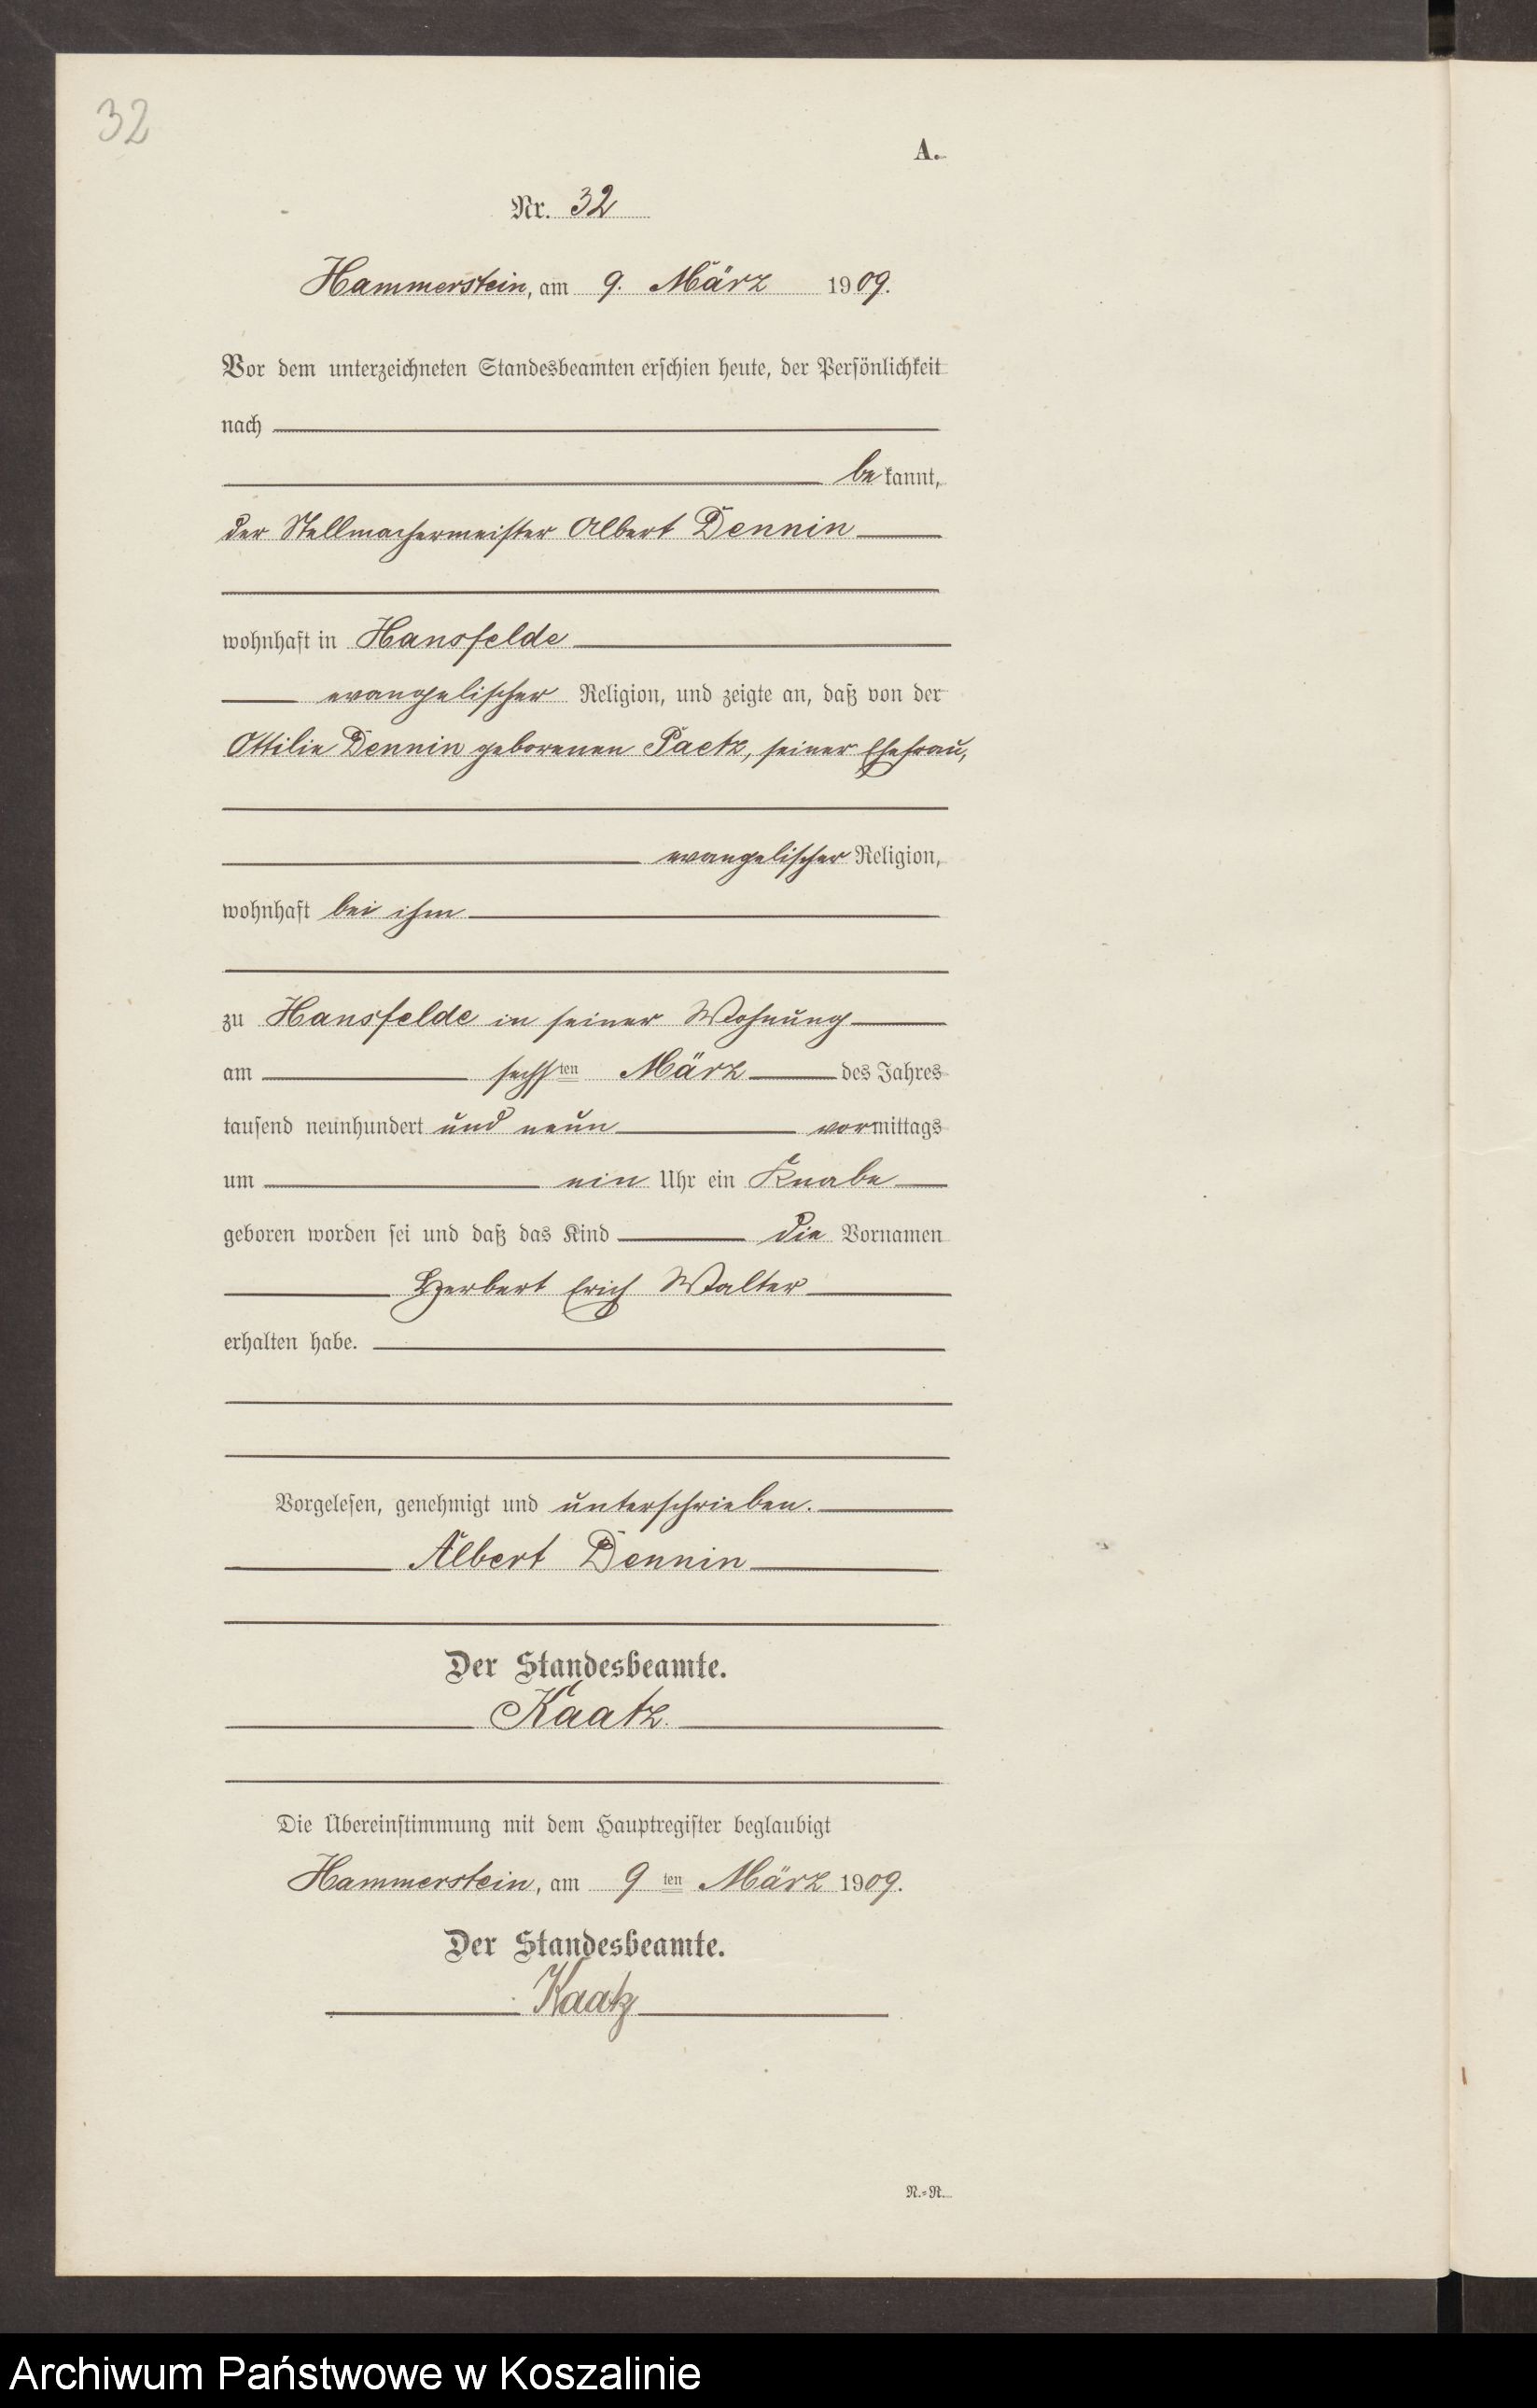 32
A.
Nr. 32
Hammerstein, am 9. März 1909.
Vor dem unterzeichneten Standesbeamten erschien heute, der Persönlichkeit
nach
bekannt,
der Stellmachermeister Albert Dennin
wohnhaft in Hansfelde
evangelischer Religion, und zeigte an, daß von der
Ottilie Dennin geborenen Paetz, seiner Ehefrau,
evangelischer Religion,
wohnhaft bei ihm
zu Hansfelde in seiner Wohnung
am sechsten März des Jahres
tausend neunhundert und neun vormittags
um ein Uhr ein Knabe
geboren worden sei und daß das Kind die Vornamen
Herbert Erich Walter
erhalten habe.
Vorgelesen, genehmigt und unterschrieben.
Albert Dennin
Der Standesbeamte.
Kaatz.
Die Übereinstimmung mit dem Hauptregister beglaubigt
Hammerstein, am 9ten März 1909.
Der Standesbeamte.
Kaatz
N.-R.
Archiwum Państwowe w Koszalinie